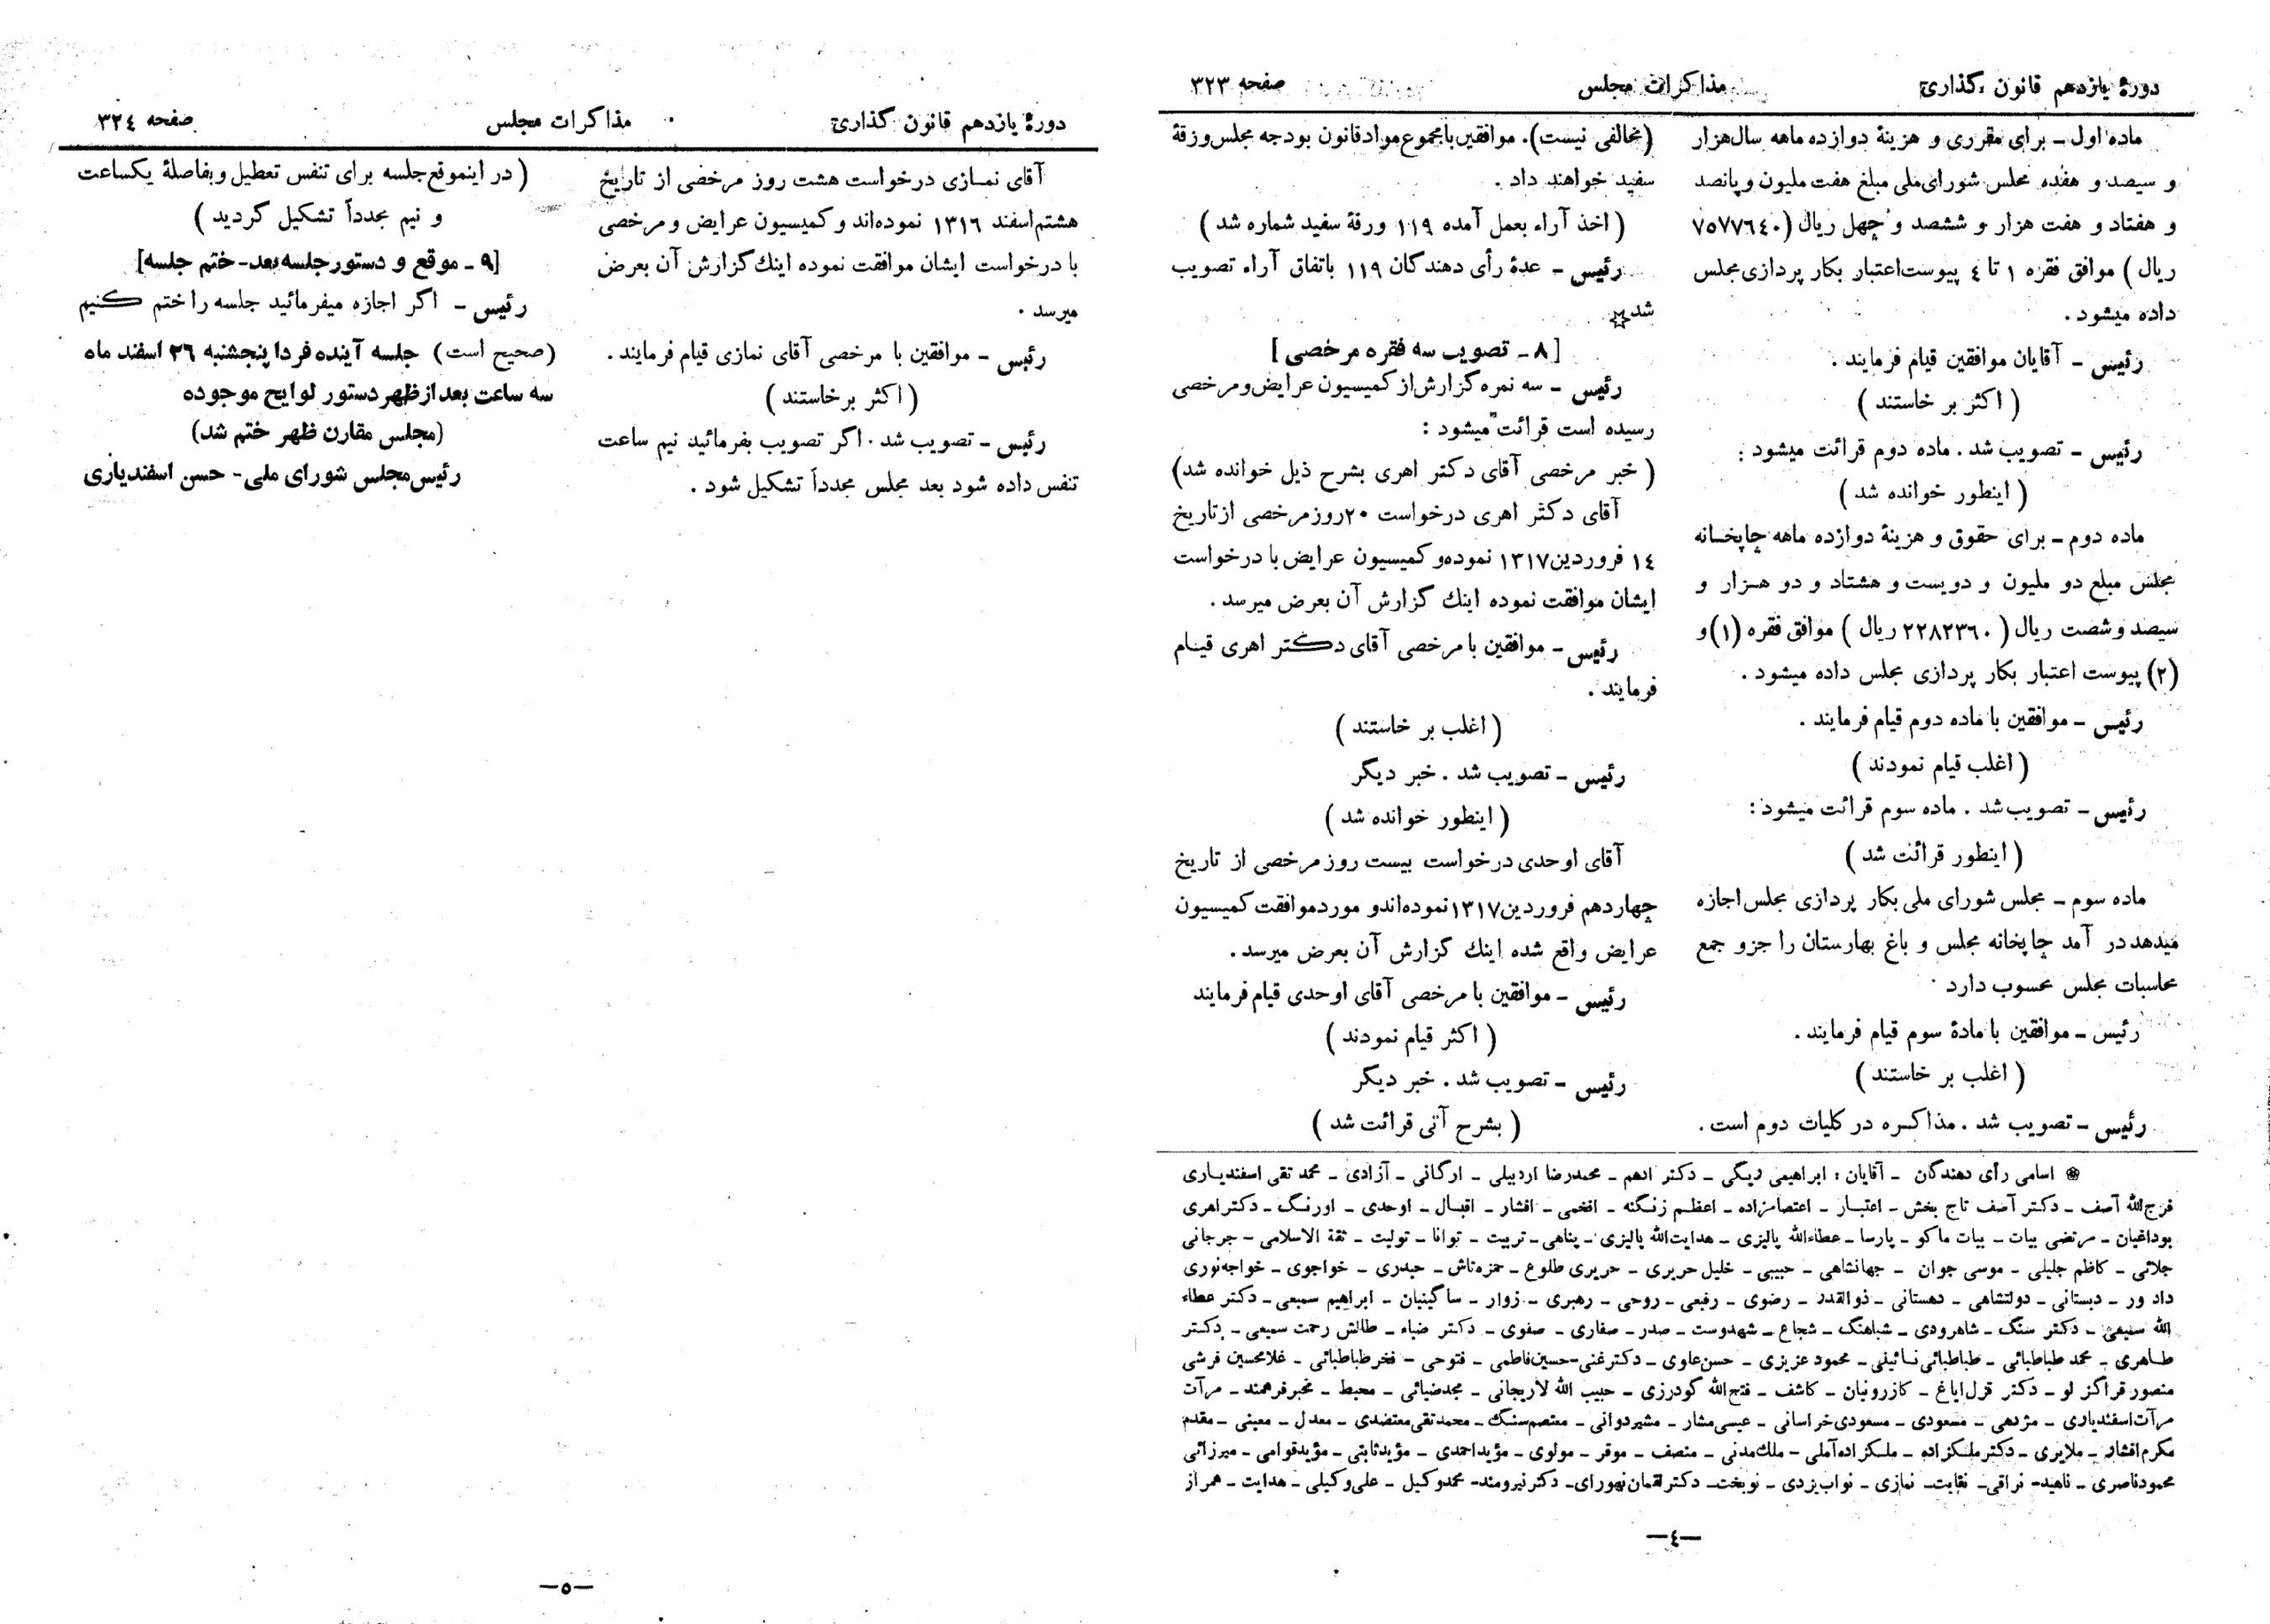 دورهٔ یازدهم قانون گذاری
مذاکرات مجلس
صفحه ۳۲۳
ماده اول ــ برای مقرری و هزینهٔ دوازده ماهه سال هزار
و سیصد و هفده مجلس شورای ملی مبلغ هفت ملیون و پانصد
و هفتاد و هفت هزار و ششصد و چهل ریال (۷۵۷۷٦٤۰
ریال) موافق فقره ۱ تا ٤ پیوست اعتبار بکار پردازی مجلس
داده میشود.
رئیس ــ آقایان موافقین قیام فرمایند.
(اکثر بر خاستند)
رئیس ــ تصویب شد. ماده دوم قرائت میشود:
(اینطور خوانده شد)
ماده دوم ــ برای حقوق و هزینهٔ دوازده ماهه چاپخانه
مجلس مبلغ دو ملیون و دویست و هشتاد و دو هزار و
سیصد و شصت ریال (۲۲۸۲۳٦۰ ریال) موافق فقره (۱) و
(۲) پیوست اعتبار بکار پردازی مجلس داده میشود.
رئیس ــ موافقین با ماده دوم قیام فرمایند.
(اغلب قیام نمودند)
رئیس ــ تصویب شد. ماده سوم قرائت میشود:
(اینطور قرائت شد)
ماده سوم ــ مجلس شورای ملی بکار پردازی مجلس اجازه
میدهد در آمد چاپخانه مجلس و باغ بهارستان را جزو جمع
محاسبات مجلس محسوب دارد.
رئیس ــ موافقین با مادهٔ سوم قیام فرمایند.
(اغلب بر خاستند)
رئیس ــ تصویب شد. مذاکره در کلیات دوم است.
(مخالفی نیست). موافقین با مجموع مواد قانون بودجه مجلس ورقهٔ
سفید خواهند داد.
(اخذ آراء بعمل آمده ۱۱۹ ورقهٔ سفید شماره شد)
رئیس ــ عدهٔ رأی دهندگان ۱۱۹ باتفاق آراء تصویب
شد☆
[۸ ــ تصویب سه فقره مرخصی]
رئیس ــ سه نمره گزارش از کمیسیون عرایض و مرخصی
رسیده است قرائت میشود:
(خبر مرخصی آقای دکتر اهری بشرح ذیل خوانده شد)
آقای دکتر اهری درخواست ۲۰ روز مرخصی از تاریخ
۱٤ فروردین ۱۳۱۷ نموده و کمیسیون عرایض با درخواست
ایشان موافقت نموده اینك گزارش آن بعرض میرسد.
رئیس ــ موافقین با مرخصی آقای دکتر اهری قیام
فرمایند.
(اغلب بر خاستند)
رئیس ــ تصویب شد. خبر دیگر
(اینطور خوانده شد)
آقای اوحدی درخواست بیست روز مرخصی از تاریخ
چهاردهم فروردین ۱۳۱۷ نموده‌اند و مورد موافقت کمیسیون
عرایض واقع شده اینك گزارش آن بعرض میرسد.
رئیس ــ موافقین با مرخصی آقای اوحدی قیام فرمایند
(اکثر قیام نمودند)
رئیس ــ تصویب شد. خبر دیگر
(بشرح آتی قرائت شد)
❀ اسامی رأی دهندگان ــ آقایان: ابراهیمی دیگی ــ دکتر ادهم ــ محمدرضا اردبیلی ــ ارگانی ــ آزادی ــ محمد تقی اسفندیاری
فرج‌الله آصف ــ دکتر آصف تاج بخش ــ اعتبار ــ اعتصام‌زاده ــ اعظم زنگنه ــ افخمی ــ افشار ــ اقبال ــ اوحدی ــ اورنگ ــ دکتر اهری
بوداغیان ــ مرتضی بیات ــ بیات ماکو ــ پارسا ــ عطاءالله پالیزی ــ هدایت‌الله پالیزی ــ پناهی ــ تربیت ــ توانا ــ تولیت ــ ثقة الاسلامی ــ جرجانی
جلائی ــ کاظم جلیلی ــ موسی جوان ــ جهانشاهی ــ حبیبی ــ خلیل حریری ــ حریری طلوع ــ حمزه‌تاش ــ حیدری ــ خواجوی ــ خواجه‌نوری
داد ور ــ دبستانی ــ دولتشاهی ــ دهستانی ــ ذوالقدر ــ رضوی ــ رفیعی ــ روحی ــ رهبری ــ زوار ــ ساگینیان ــ ابراهیم سمیعی ــ دکتر عطاء
الله سمیعی ــ دکتر سنگ ــ شاهرودی ــ شباهنگ ــ شجاع ــ شهدوست ــ صدر ــ صفاری ــ صفوی ــ دکتر ضیاء ــ طالش رحمت سمیعی ــ دکتر
طاهری ــ محمد طباطبائی ــ طباطبائی نائینی ــ محمود عزیزی ــ حسن علوی ــ دکتر غنی ــ حسین فاطمی ــ فتوحی ــ فخر طباطبائی ــ غلامحسین فرشی
منصور قراگز لو ــ دکتر قزل‌ایاغ ــ کازرونیان ــ کاشف ــ فتح‌الله گودرزی ــ حبیب الله لاریجانی ــ مجد ضیائی ــ محیط ــ مخبر فرهمند ــ مرآت
مرآت اسفندیاری ــ مژدهی ــ مسعودی ــ مسعودی خراسانی ــ عیسی مشار ــ مشیر دوانی ــ معتصم سنگ ــ محمدتقی معتضدی ــ معدل ــ معینی ــ مقدم
مکرم افشار ــ ملایری ــ دکتر ملک‌زاده ــ ملک‌زاده آملی ــ ملك مدنی ــ منصف ــ موقر ــ مولوی ــ مؤید احمدی ــ مؤید ثابتی ــ مؤید قوامی ــ میرزائی
محمود ناصری ــ ناهید ــ نراقی ــ نقابت ــ نمازی ــ نواب یزدی ــ نوبخت ــ دکتر لقمان نهورای ــ دکتر نیرومند ــ محمد وکیل ــ علی وکیلی ــ هدایت ــ همراز
—٤—
دورهٔ یازدهم قانون گذاری
مذاکرات مجلس
صفحه ۳۲٤
آقای نمازی درخواست هشت روز مرخصی از تاریخ
هشتم اسفند ۱۳۱٦ نموده‌اند و کمیسیون عرایض و مرخصی
با درخواست ایشان موافقت نموده اینك گزارش آن بعرض
میرسد.
رئیس ــ موافقین با مرخصی آقای نمازی قیام فرمایند.
(اکثر برخاستند)
رئیس ــ تصویب شد. اگر تصویب بفرمائید نیم ساعت
تنفس داده شود بعد مجلس مجدداً تشکیل شود.
(در اینموقع جلسه برای تنفس تعطیل و بفاصلهٔ یکساعت
و نیم مجدداً تشکیل گردید)
[۹ ــ موقع و دستور جلسه بعد ــ ختم جلسه]
رئیس ــ اگر اجازه میفرمائید جلسه را ختم کنیم
(صحیح است) جلسه آینده فردا پنجشنبه ۲٦ اسفند ماه
سه ساعت بعد از ظهر دستور لوایح موجوده
(مجلس مقارن ظهر ختم شد)
رئیس مجلس شورای ملی ــ حسن اسفندیاری
—٥—